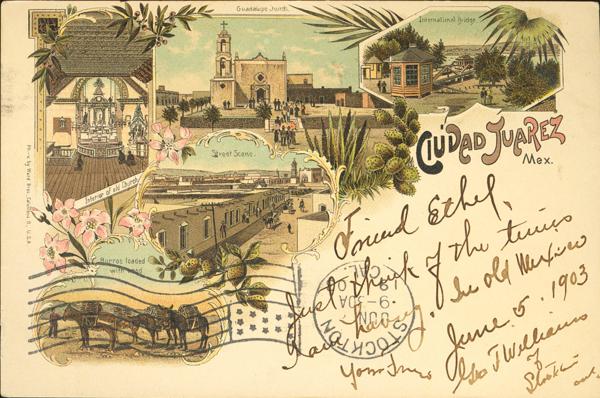 Guadalupe Church.
International Bridge.
CIUDAD JUAREZ
Mex.
Street Scene.
Interior of old Church.
Burros loaded
with wood
Friend Ethel,
Just think of the times
I am having. In old Mexico
June 5, 1903
Yours Truly
Geo T Williams
of
Stockton
STOCKTON
JUN
9-30A
CAL.